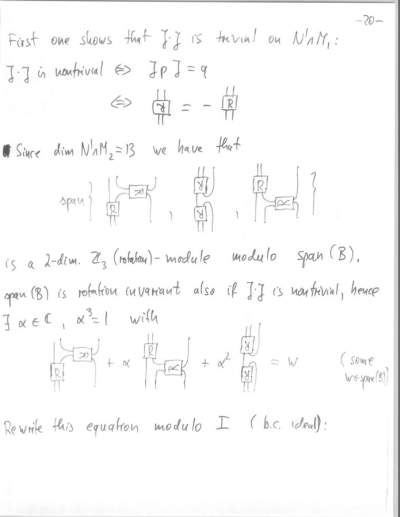 -20-
First one shows that ⁅·⁆ is trivial on N'∩M₁:
⁅·⁆ is nontrivial ⇔ ⁅p⁆ = q
⇔ = - R
Since dim N'∩M₂ = 13 we have that
span { R , , R }
is a 2-dim. ℤ₃ (rotation)-module modulo span (B).
span (B) is rotation invariant also if ⁅·⁆ is nontrivial, hence
∃ α ∈ ℂ, α³=1 with
R + α R + α² = w (some w∈span(B))
Rewrite this equation modulo I (b.c. ideal):